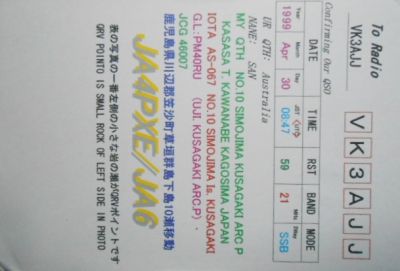 To Radio
VK3AJJ
VK3AJJ
Confirming Our QSO
DATE TIME RST BAND MODE
Year Month Day JST UTC MHz 2Way
1999 Apr 30 08:47 59 21 SSB
UR QTH: Australia
NAME: SAN
MY QTH NO.10 SIMOJIMA KUSAGAKI ARC P
KASASA T. KAWANABE KAGOSIMA JAPAN
IOTA AS-067 NO.10 SIMOJIMA Is. KUSAGAKI
G.L: PM40RU (UJI. KUSAGAKI ARC.P)
JCG 46007
鹿児島県川辺郡笠沙町草垣群島下島10瀬移動
JA4PXE/JA6
表の写真の一番左側の小さな岩の瀬がQRVポイントです
QRV POINTO IS SMALL ROCK OF LEFT SIDE IN PHOTO